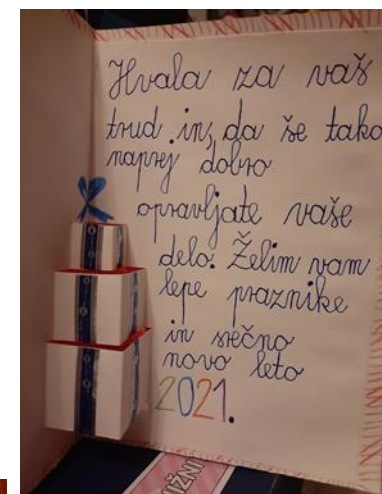 Hvala za vaš
trud in, da še tako
naprej dobro
opravljate vaše
delo. Želim vam
lepe praznike
in srečno
novo leto
2021.
IŽNI